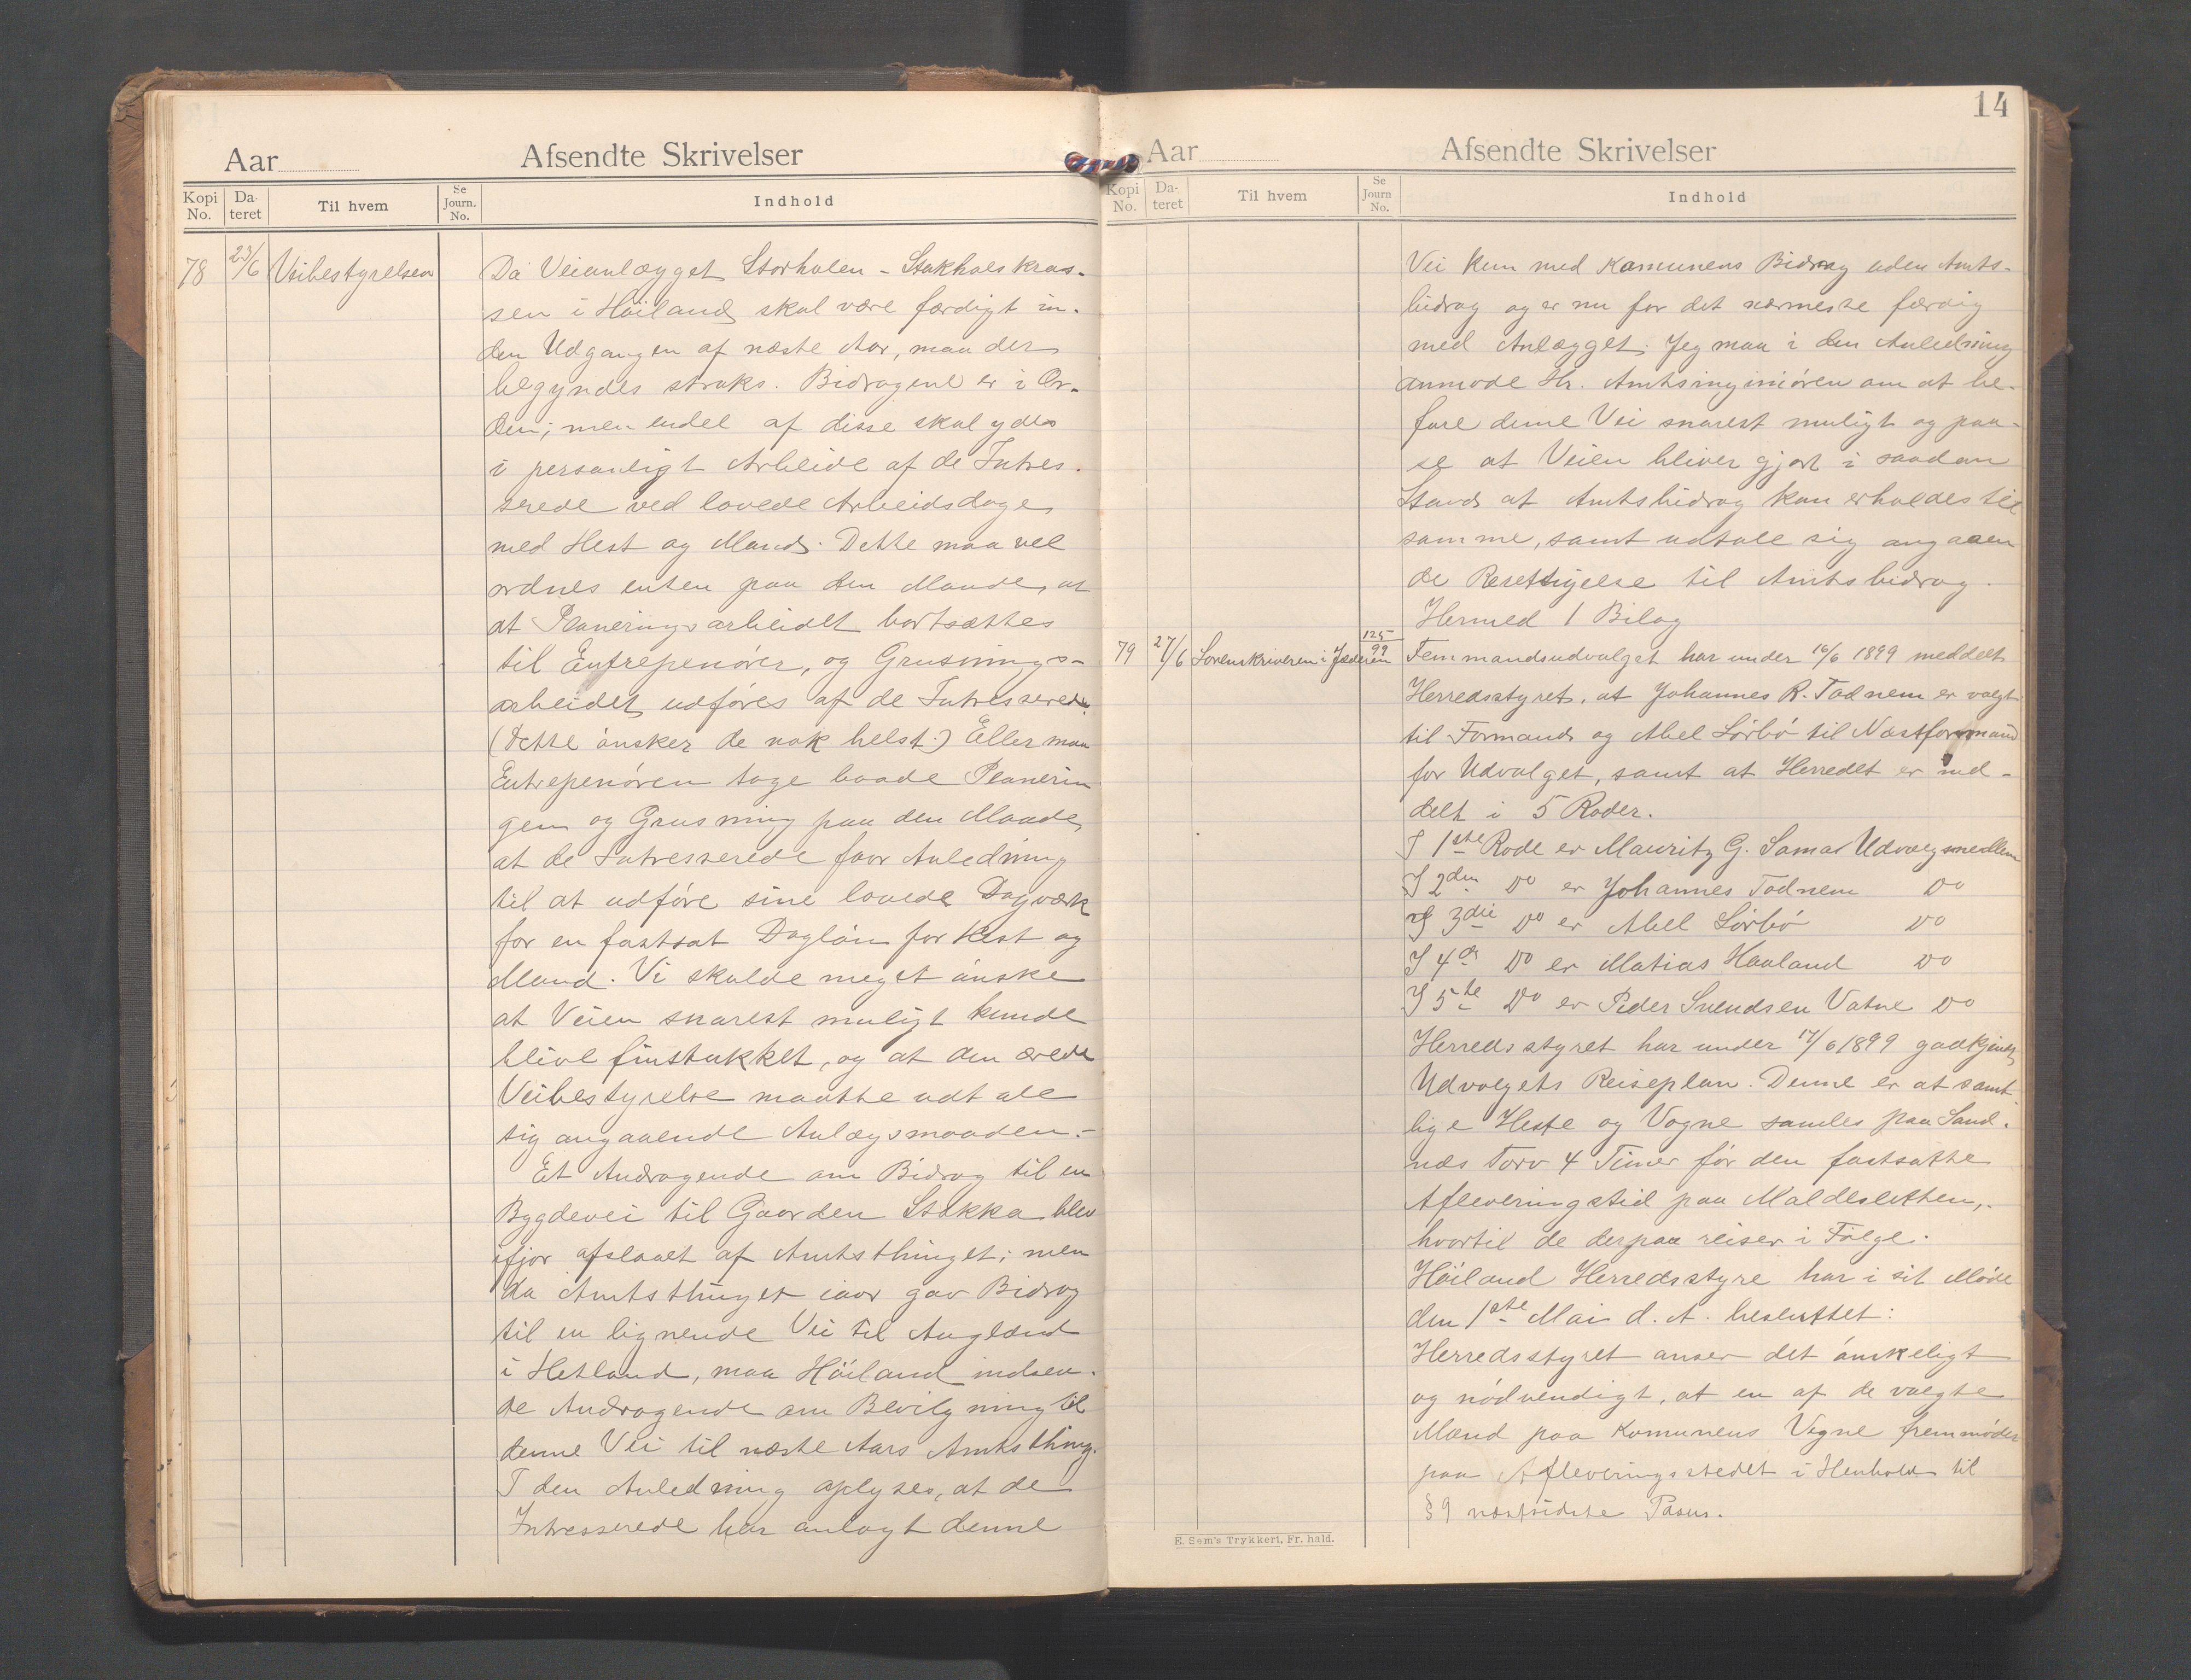 Aar
Afsendte Skrivelser
Kopi No.
Da-teret
Til hvem
Se Journ. No.
Indhold
78
23/6
Veibestyrelsen
Da Veianlægget Storholen - Stokholskras-
sen i Höiland skal være færdigt in-
den Udgangen af næste Aar, maa der
begyndes straks. Bidragene er i Or-
den; men endel af disse skal ydes
i personligt Arbeide af de Intres-
serede ved lovede Arbeidsdage
med Hest og Mand. Dette maa vel
ordnes enten paa den Maade, at
at Planeringsarbeidet bortsættes
til Entrepenører, og Grusnings-
arbeidet udføres af de Intresserede
(Dette ønsker de nok helst.) Eller maa
Entrepenøren tage baade Planerin
gen og Grusning paa den Maade,
at de Intresserede faar Anledning
til at udføre sine lovede Dagværk
for en fastsat Dagløn for Hest og
Mand. Vi skulde meget ønske
at Veien snarest muligt kunde
blive finstukket, og at den ærede
Veibestyrelse maatte udtale
sig angaaende Anlægsmaaden.-
Et Andragende om Bidrag til en
Bygdevei til Gaarden Stokka blev
ifjor afslaaet af Amtsthinget; men
da Amtsthinget iaar gav Bidrag
til en lignende Vei til Augland
i Hetland, maa Höiland indsen-
de Andragende om Bevilgning til
denne Vei til næste Aars Amtsthing.
I den Anledning oplyses, at de
Intresserede har anlagt denne
14
Aar
Afsendte Skrivelser
Kopi No.
Da-teret
Til hvem
Se Journ No.
Indhold
Vei kun med Komunens Bidrag uden Amts-
bidrag og er nu for det nærmeste færdig
med Anlægget. Jeg maa i den Anledning
anmode Hr. Amtsingniören om at be-
fare denne Vei snarest muligt og paa-
se at Veien bliver gjort i saadan
Stand at Amtsbidrag kan erholdes til
samme, samt udtale sig angaaen
de Berettigelse til Amtsbidrag.
Hermed 1 Bilag
79
27/6
Sorenskriveren i Jæderen
125/99
Femmandsudvalget har under 16/6 1899 meddelt
Herredsstyret, at Johannes R. Todnem er valgt
til Formand og Abel Sørbø til Næstformand
for Udvalget, samt at Herredet er ind-
delt i 5 Roder.
I 1ste Rode er Mauritz G. Sømas Udvalgsmedlem
I 2den Do er Johannes Todnem Do
I 3die Do er Abel Sørbø Do
I 4de Do er Matias Haaland Do
I 5te Do er Peder Svendsen Vatne Do
Herredsstyret har under 17/6 1899 godkjendt
Udvalgets Reiseplan. Denne er at samt-
lige Heste og Vogne samles paa Sand-
nes Torv 4 Timer før den fastsatte
Afleveringstid paa Maldesletten,
hvortil de derpaa reiser i Følge.
Höiland Herredsstyre har i sit Møde
den 1ste Mai d. A. besluttet:
Herredsstyret anser det ønskeligt
og nødvendigt, at en af de valgte
Mænd paa Komunens Vegne fremmøder
paa Afleveringsstedet i Henhold til
§ 9 næstsidste Passus.
E. Sem's Trykkeri, Fr. hald.